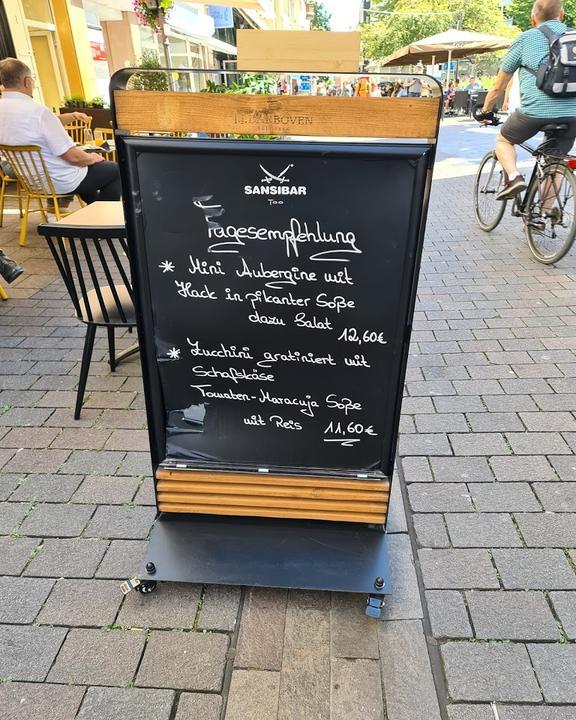 J.J. DARBOVEN
SANSIBAR
Too
Tagesempfehlung
* Mini Aubergine mit
Hack in pikanter Soße
dazu Salat
12,60€
* Zucchini gratiniert mit
Schafskäse
Tomaten-Maracuja Soße
mit Reis 11,60€